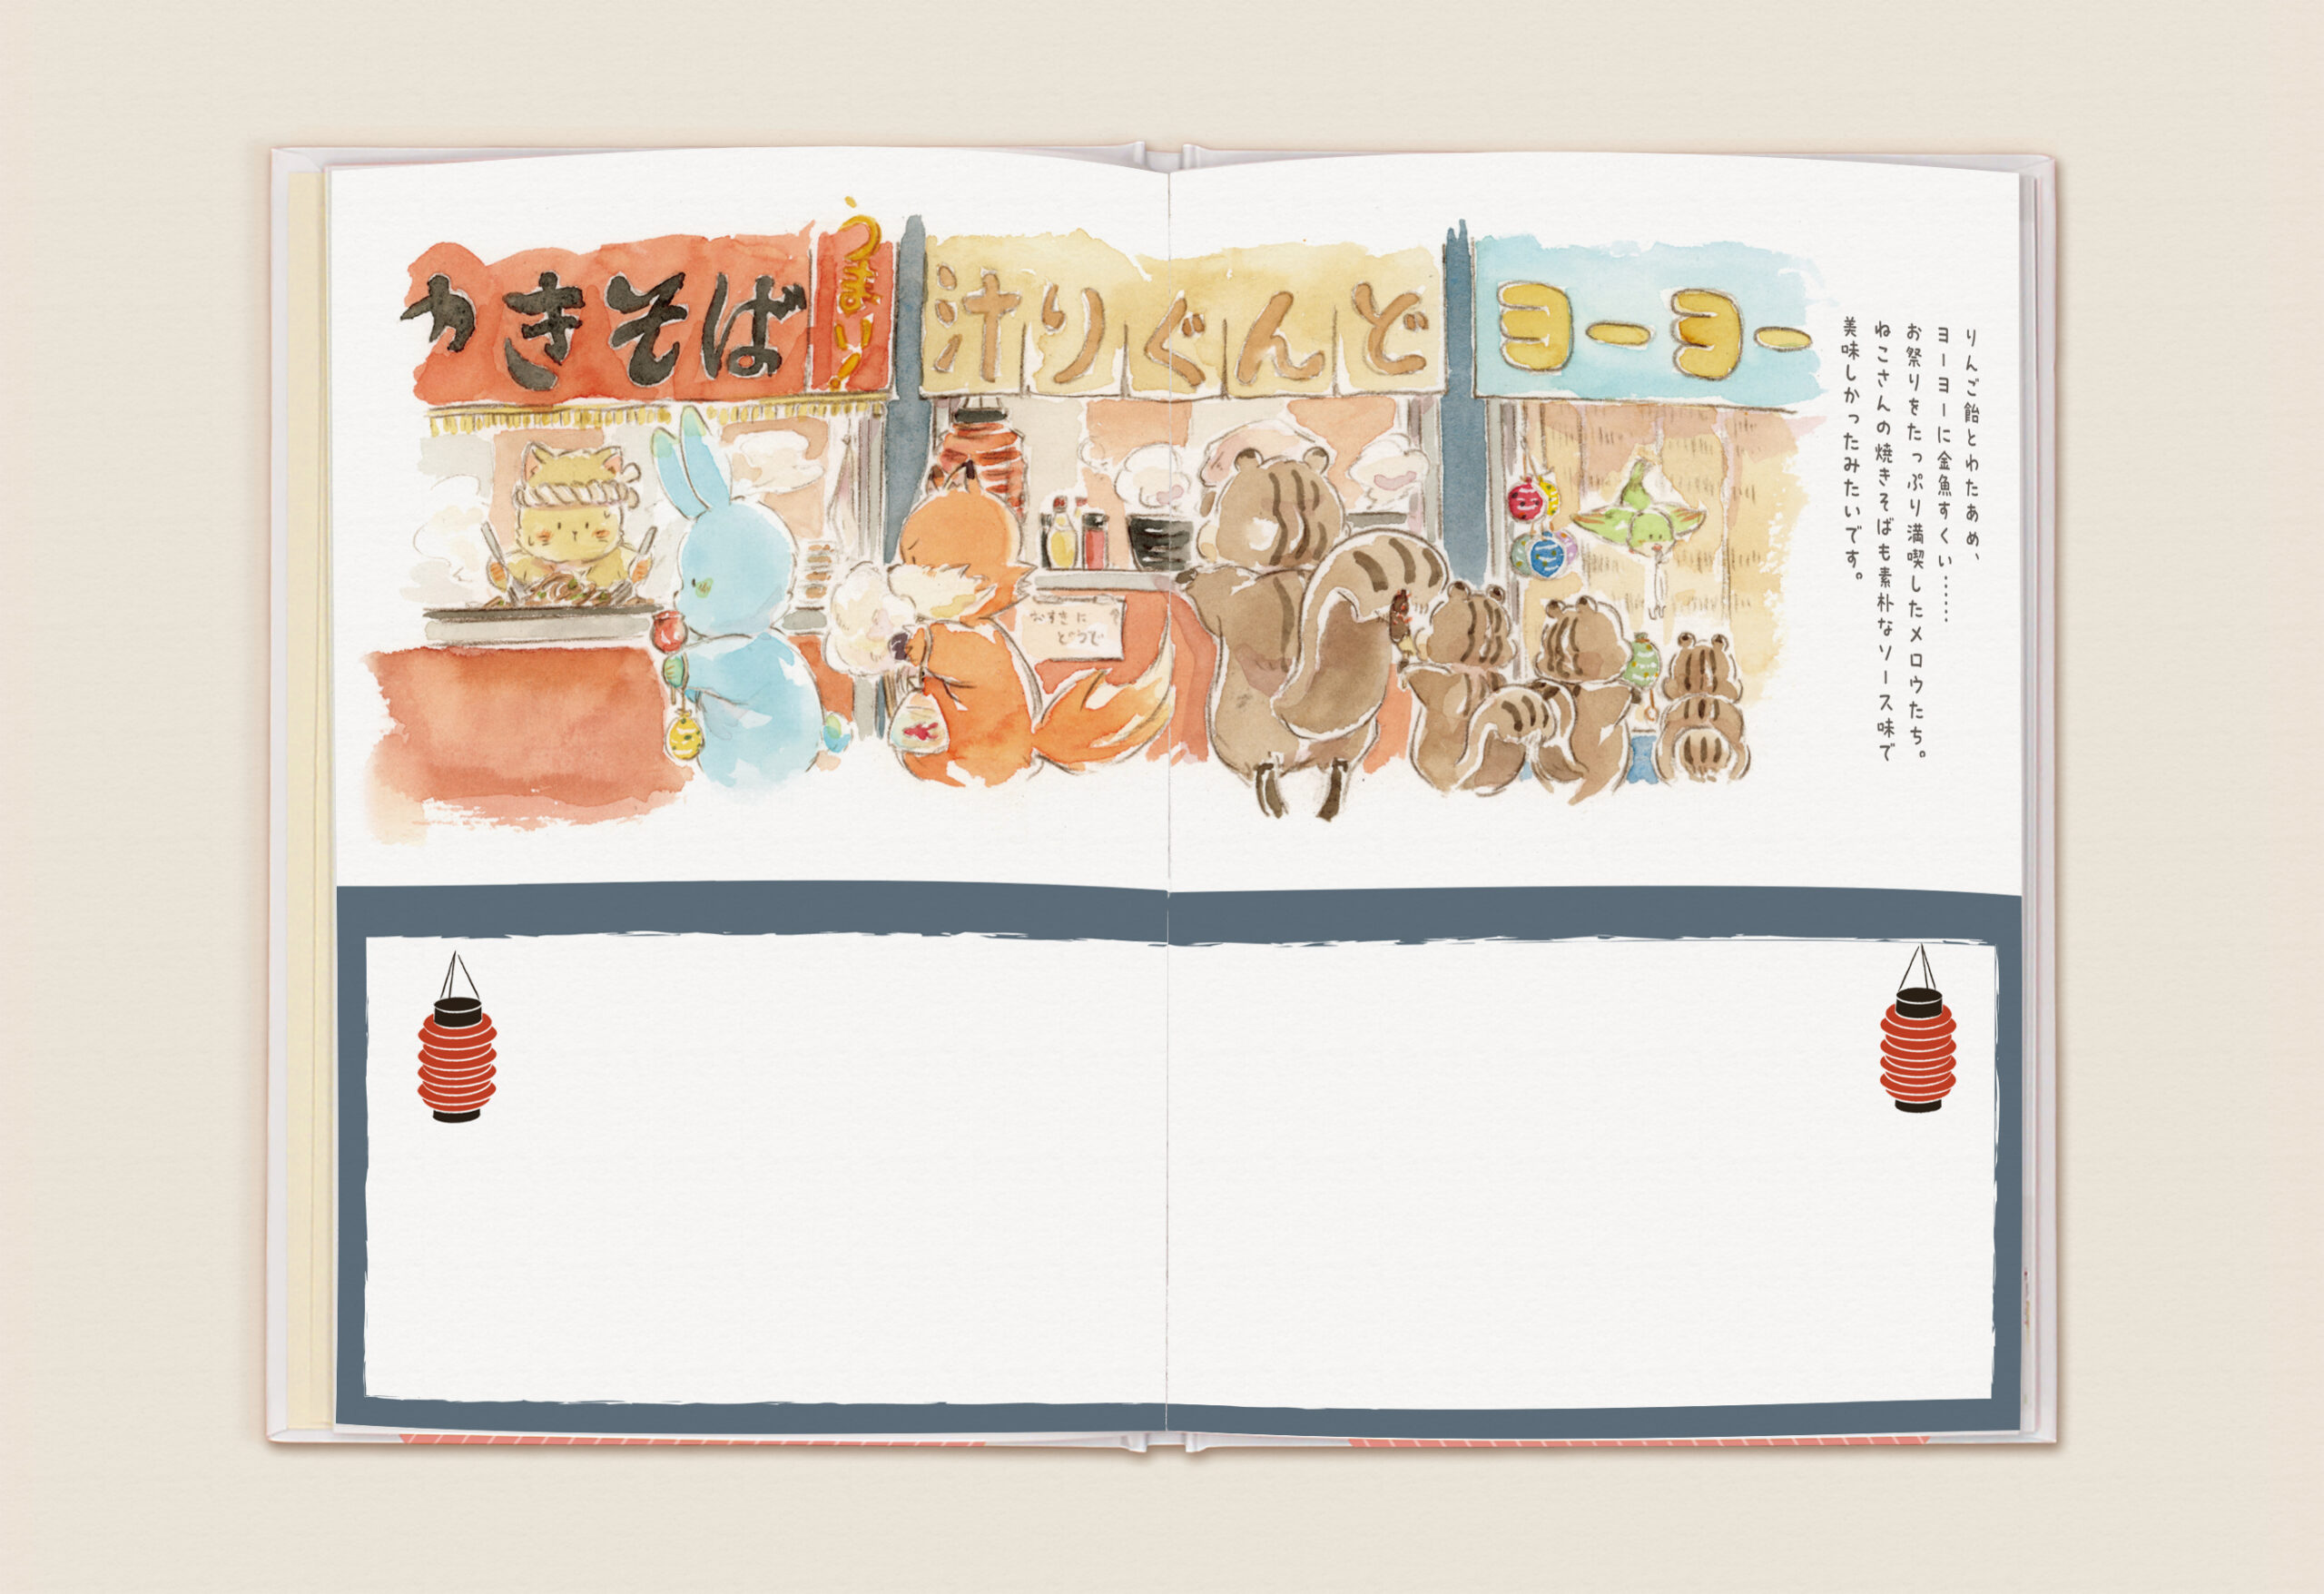 やきそば
うまい!
汁りぐんど
ヨーヨー
おすきに
どうぞ
りんご飴とわたあめ、
ヨーヨーに金魚すくい……
お祭りをたっぷり満喫したメロウたち。
ねこさんの焼きそばも素朴なソース味で
美味しかったみたいです。